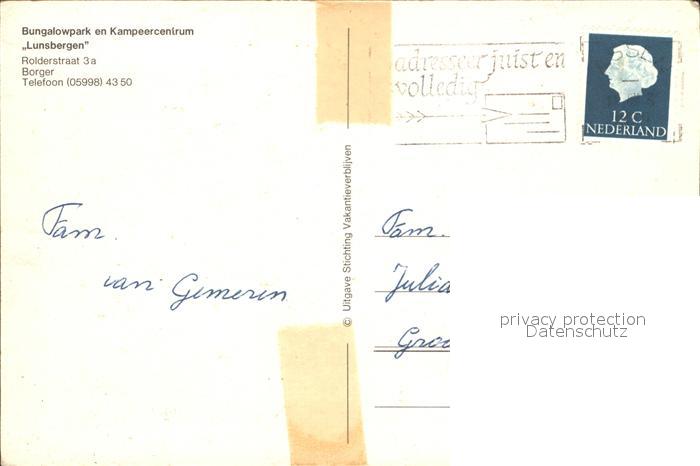 Bungalowpark en Kampeercentrum
„Lunsbergen”
Rolderstraat 3a
Borger
Telefoon (05998) 43 50
adresseer juist en
volledig
12 C
NEDERLAND
© Uitgave Stichting Vakantieverblijven
Fam.
van Gemeren
Fam.
Julia
Groo
privacy protection
Datenschutz